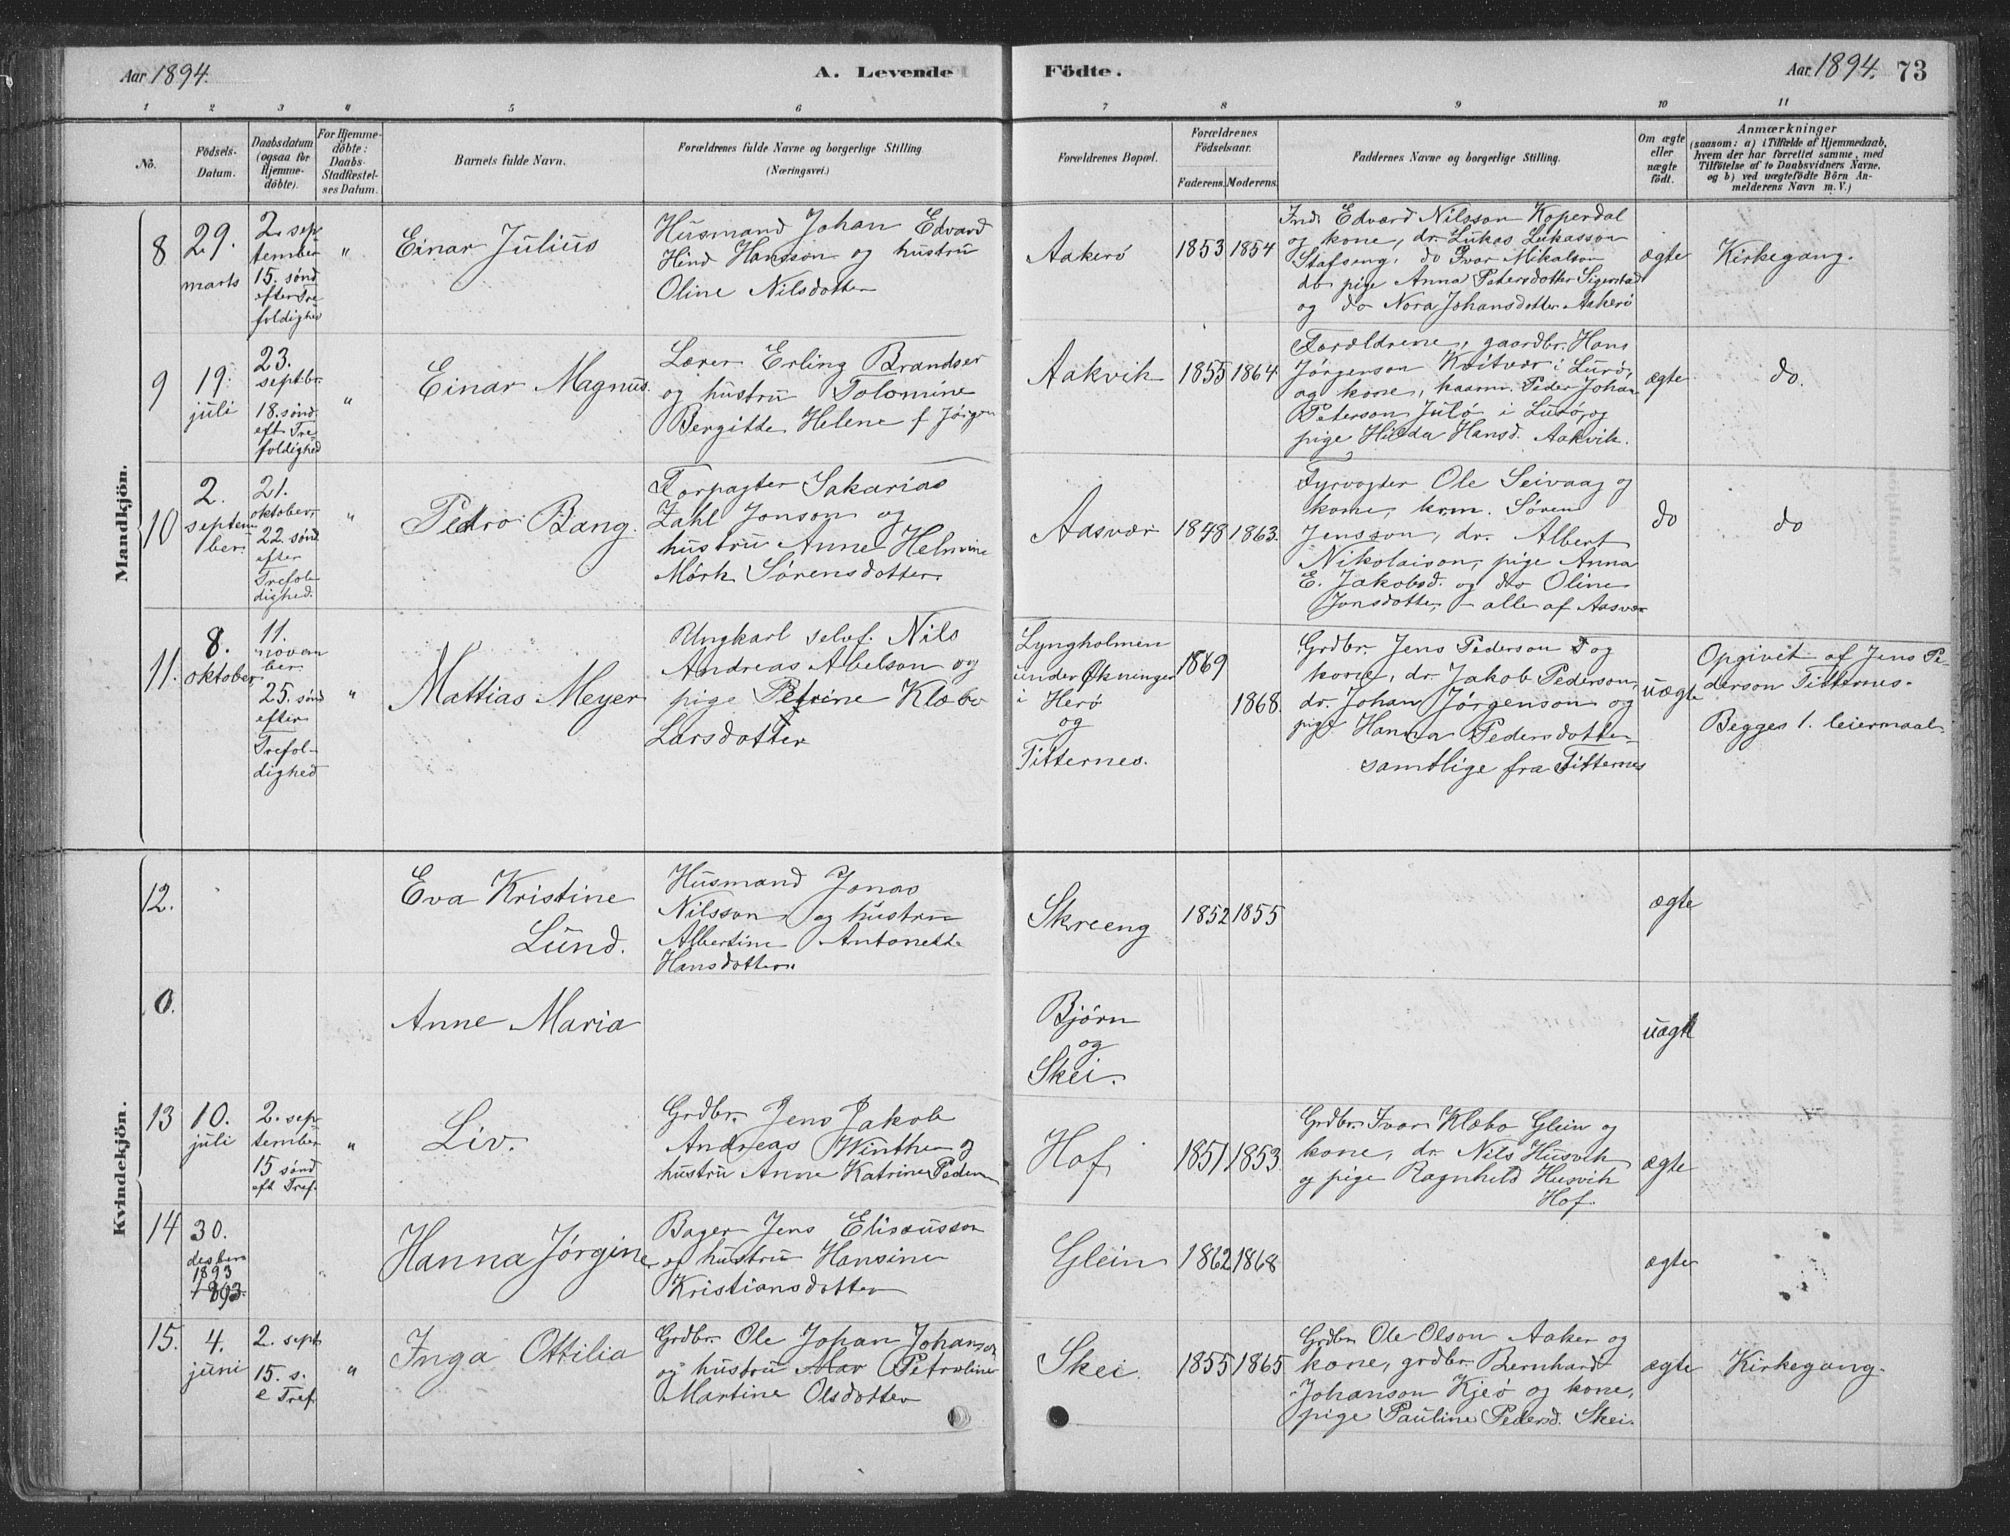 Aar 1894.
A. Levende
Födte.
Aar 1894. 73
1 2 3 4 5 6 7 8 9 10 11
No.
Födsels-
Datum.
Daabsdatum
(ogsaa for
Hjemme-
döbte).
For Hjemme-
döbte:
Daabs-
Stadfæstel-
ses Datum.
Barnets fulde Navn.
Forældrenes fulde Navne og borgerlige Stilling
(Næringsvei.)
Forældrenes Bopæl.
Forældrenes
Födselsaar.
Faderens. Moderens.
Faddernes Navne og borgerlige Stilling.
Om ægte
eller
uægte
födt.
Anmærkninger
(saasom: a) i Tilfælde af Hjemmedaab,
hvem der har forrettet samme, med
Tilföielse af to Daabsvidners Navne.
og b) ved uægtefödte Börn An-
melderens Navn m. V.)
Mandkjön.
8
29.
marts
2. sep
tember
15. sønd
efter Tre
foldighed
"
Einar Julius
Husmand Johan Edvard
Hind Hansson og hustru
Oline Nilsdotter
Aakerö
1853 1854
Ind. Edvard Nilsson Koperdal
og kone, dr. Lukas Lukasson
Stafseng, do Ivar Mikalson
do pige Anna Petersdotter Sigerstad
og do Nora Johansdotter Aakerö
ægte
Kirkegang.
9
19.
juli
23.
septbr.
18. sønd.
eft Tre
foldighed
"
Einar Magnus
Lærer Erling Brandser
og hustru Tolomine
Bergitte Helene f Jørgen
Aakvik
1855 1864
Forældrene, gaardbr. Hans
Jørgenson Kvitvær i Lurö,
og kone, kaarm. Peder Johan
Peterson Julö i Lurö, og
pige Hilda Hansd. Aakvik.
ægte
do.
10
2.
septem
ber
21.
oktober
22. sønd
efter
Trefol-
dighed.
"
Pedro Bang.
Forpagter Sakarias
Zahl Jonson og
hustru Anne Helmine
Mörk Sörensdotter
Aasvær
1848 1863.
Fyrvogter Ole Seivaag og
kone, krm. Sören
Jensson, dr. Albert
Nikolaison, pige Anna
E. Jakobsd. og do Oline
Jonsdotter, – alle af Aasvær
do
do
11.
8.
oktober
11.
novem
ber
25. sønd
efter
Trefol-
dighed
"
Mattias Meyer
Ungkarl selvf. Nils
Andreas Abelson og
pige Petrine Klæbo
Larsdotter
Lyngholmen
under Økningen
i Herö
og
Titternes.
1869
1868.
Grdbr. Jens Pederson T og
kone, dr. Jakob Pederson,
dr. Johan Jørgenson og
pige Hanna Pedersdotter
samtlige fra Titternes
uægte
Opgivet af Jens Pe-
derson Titternes.
Begges 1. leiermaal.
Kvindekjön.
12.
Eva Kristine
Lund.
Husmand Jonas
Nilsson og hustru
Albertine Antonette
Hansdotter.
Skreeng
1852 1855
ægte
0.
Anne Maria
Bjørn
og
Skei.
uægte
13
10.
juli
2. sep
tember
15 sønd
eft Tref.
"
Liv.
Grdbr. Jens Jakob
Andreas Winther og
hustru Anne Katrine Peder
Hof
1851 1853.
Grdbr. Ivar Klæbo Glein og
kone, dr. Nils Husvik
og pige Ragnhild Husvik
Hof.
ægte
14
30.
desbr.
1893
1893.
"
Hanna Jørgine
Bager Jens Elisæusson
og hustru Hansine
Kristiansdotter
Glein
1862 1868
ægte
15.
4.
juni
2. sept
15. s.
e Tref.
"
Inga Ottilia
Grdbr. Ole Johan Johanson
og hustru Mar Petroline
Martine Olsdotter
Skei.
1855 1865
Grdbr Ole Olson Aaker og
kone, grdbr. Bernhard
Johanson Kjeö og kone,
pige Pauline Pedersd. Skei.
ægte
Kirkegang.